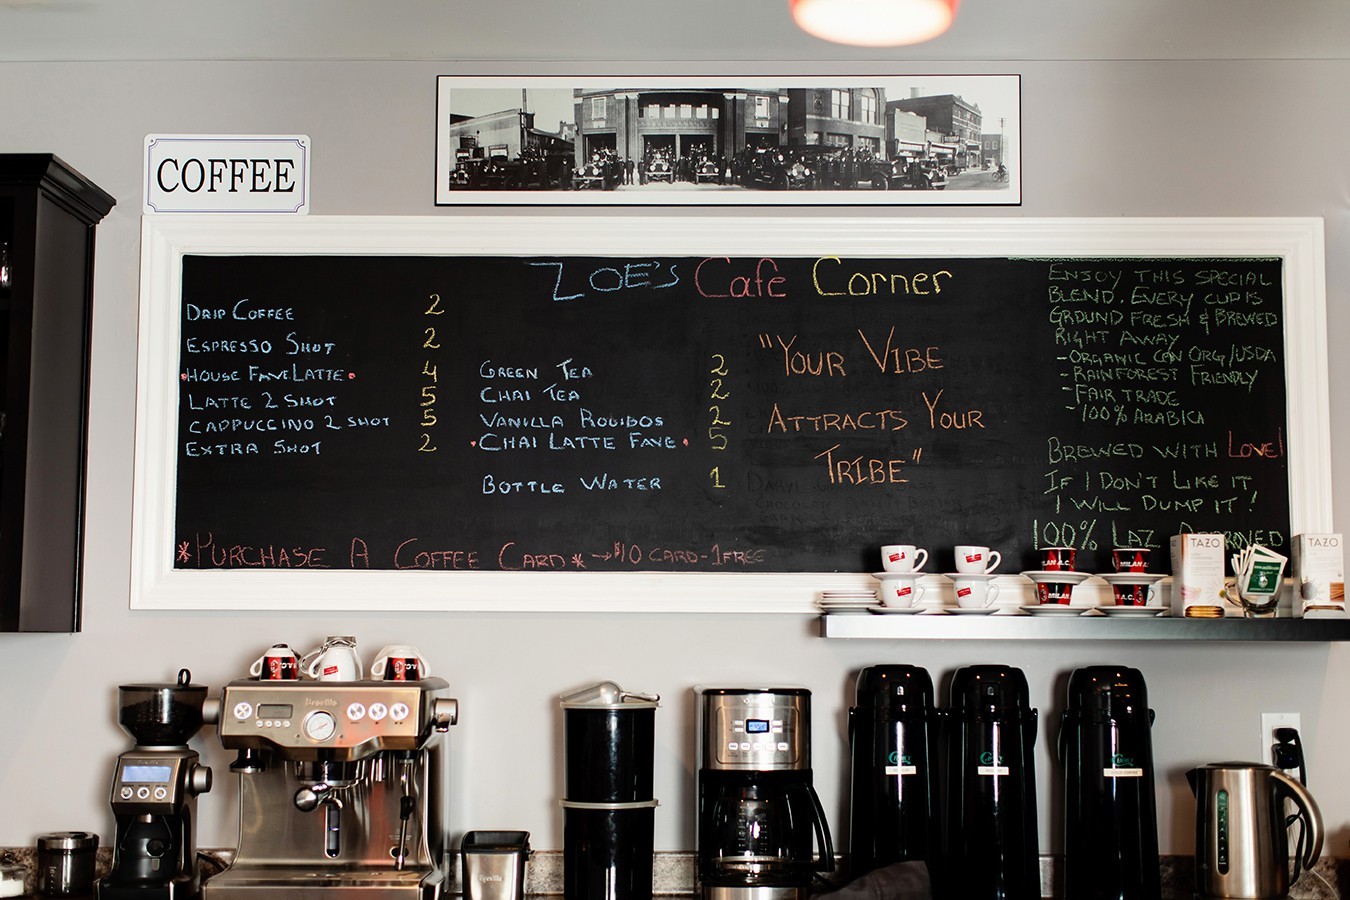 COFFEE
ZOE'S Cafe Corner
DRIP COFFEE 2
ESPRESSO SHOT 2
HOUSE FAVE LATTE 4
LATTE 2 SHOT 5
CAPPUCCINO 2 SHOT 5
EXTRA SHOT 2
GREEN TEA 2
CHAI TEA 2
VANILLA ROOIBOS 2
CHAI LATTE FAVE 5
BOTTLE WATER 1
"YOUR VIBE
ATTRACTS YOUR
TRIBE"
ENJOY THIS SPECIAL
BLEND. EVERY CUP IS
GROUND FRESH & BREWED
RIGHT AWAY
-ORGANIC CAN ORG/USDA
-RAINFOREST FRIENDLY
-FAIR TRADE
-100% ARABICA
BREWED WITH LOVE!
IF I DON'T LIKE IT
I WILL DUMP IT!
100% LAZ
*PURCHASE A COFFEE CARD* → $10 CARD-1FREE
MILAN A.C.
MILAN A.C.
TAZO
TAZO
MILAN
A.C.
Breville
Breville
Breville